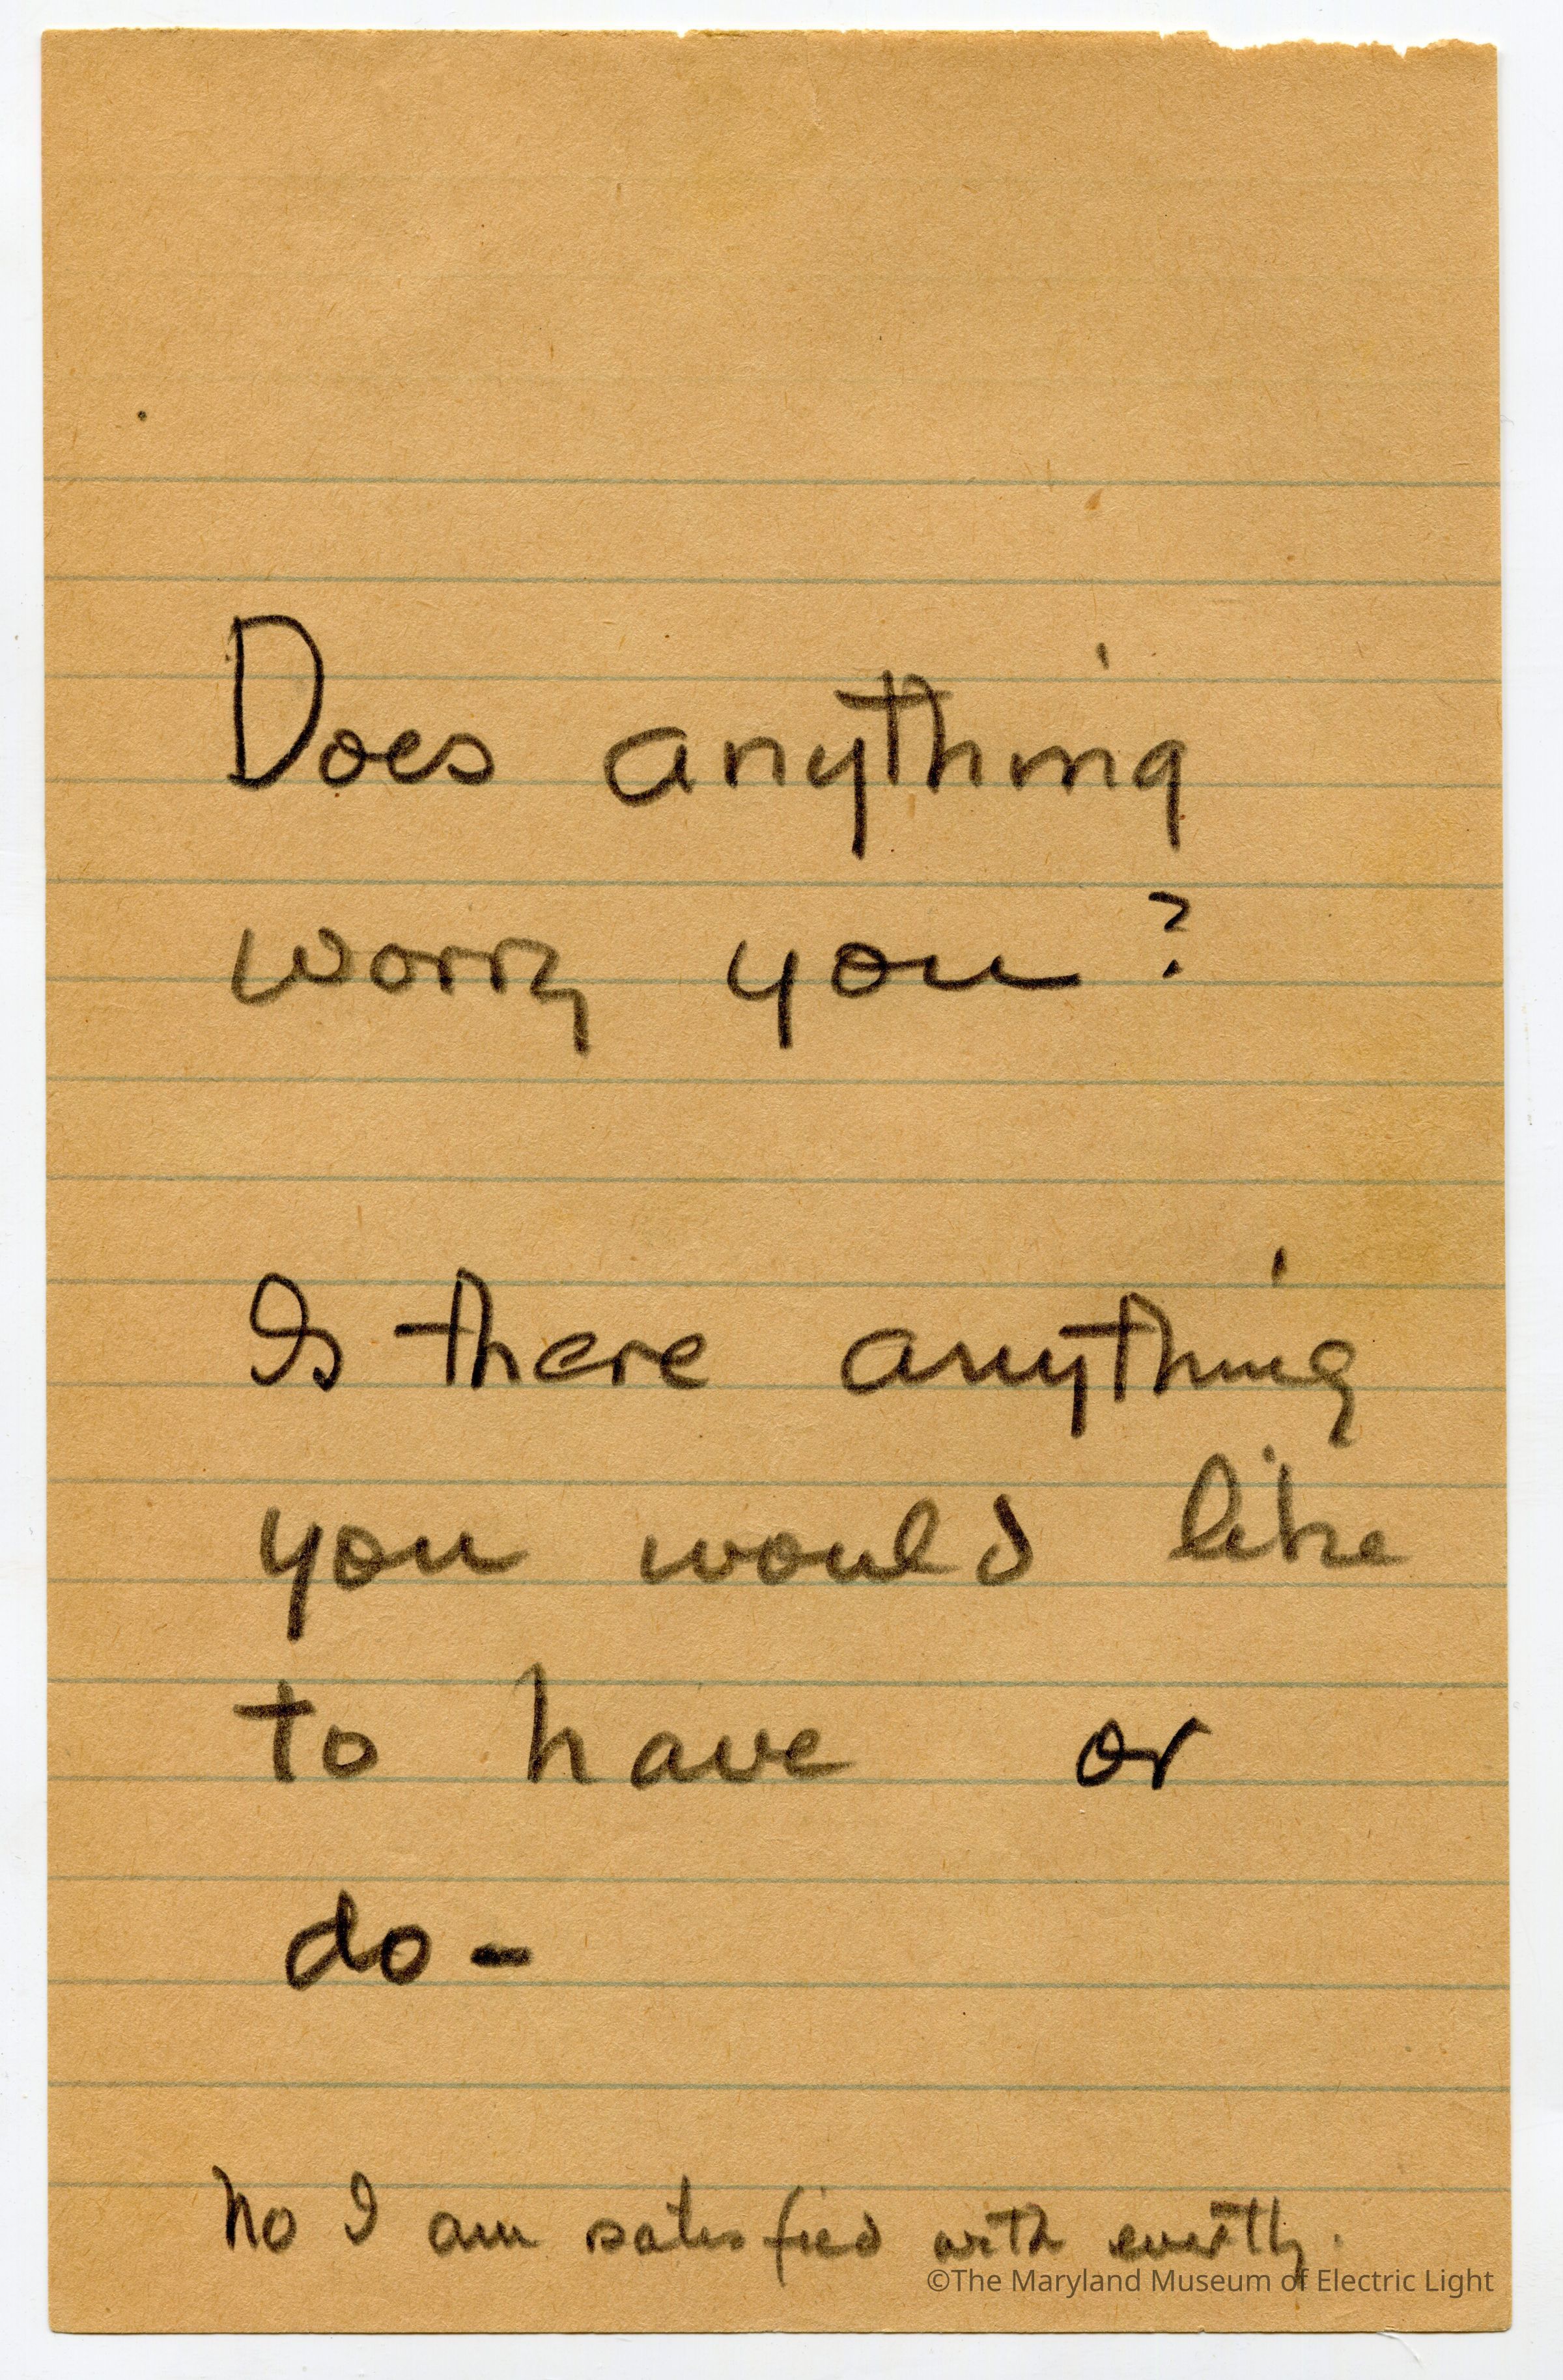 Does anything
worry you?
Is there anything
you would like
to have or
do -
No I am satisfied with everthg.
©The Maryland Museum of Electric Light